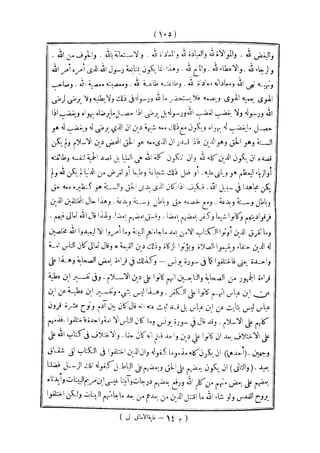 ( ١٠٥ )
والبغض لله . والموالاة لله والعبادة لله والمعاداة لله . والاستعانة بالله . والخوف من الله .
والرجاء لله . والاعطاء لله . والمنع لله . وهذا انما يكون بمتابعة رسول الله الذى أمره أمر الله
ونهيه نهى الله ومعاداته معاداة لله . وطاعته طاعة لله . ومعصيته معصية لله . وصاحب
الهوى يعميه الهوى ويصمه فلا يستحضر ما لله ورسوله فى ذلك ولا يطلبه ولا يرضى لرضى
الله ورسوله ولا يغضب لغضب الله ورسوله بل يرضى اذا حصل ما يرضاه بهواه ويغضب اذا
حصل ما يغضب له بهواه ويكون مع ذلك معه شبهة دين ان الذى يرضى له ويغضب له هو
السنة وهو الحق وهو الدين فاذا قدر ان الذى معه هو الحق المحض دين الاسلام ولم يكن
قصده ان يكون الدين كله لله وان تكون كلمة الله هى العليا بل قصد الحمية لنفسه وطائفته
أو الرياء ليعظم هو ويثنى عليه . أو فعل ذلك شجاعة وطبعا أو لغرض من الدنيا لم يكن لله ولم
يكن مجاهدا فى سبيل الله . فكيف اذا كان الذى يدعى الحق والسنة هو كنظيره معه حق
وباطل وسنة وبدعة . ومع خصمه حق وباطل وسنة وبدعة . وهذا حال المختلفين الذين
فرقوا دينهم وكانوا شيعا وكفر بعضهم بعضا . وفسق بعضهم بعضا . ولهذا قال الله تعالى فيهم .
وما تفرق الذين أوتوا الكتاب الا من بعد ما جاءتهم البينة وما أمروا الا ليعبدوا الله مخلصين
له الدين حنفاء ويقيموا الصلاة ويؤتوا الزكاة وذلك دين القيمة ، وقال تعالى كان الناس أمة
واحدة يعنى فاختلفوا كما فى سورة يونس — وكذلك فى قراءة بعض الصحابة وهذا على
قراءة الجمهور من الصحابة والتابعين انهم كانوا على دين الاسلام . وفى تفسير ابن عطية
عن ابن عباس انهم كانوا على الكفر . وهذا ليس بشىء وتفسير ابن عطية عن ابن
عباس ليس بثابت عن ابن عباس بل قد ثبت عنه انه قال كان بين آدم ونوح عشرة قرون
كلهم على الاسلام . وقد قال فى سورة يونس وما كان الناس الا أمة واحدة فاختلفوا فذمهم
على الاختلاف بعد ان كانوا على دين واحد فعلم انه كان حقا . والاختلاف فى كتاب الله على
وجهين . (أحدهما) ان يكون كله مذموما كقوله وان الذين اختلفوا فى الكتاب لفى شقاق
بعيد . (والثانى) ان يكون بعضهم على الحق وبعضهم على الباطل كقوله تلك الرسل فضلنا
بعضهم على بعض منهم من كلم الله ورفع بعضهم درجات وآتينا عيسى ابن مريم البينات وأيدناه
بروح القدس ولو شاء الله ما اقتتل الذين من بعدهم من بعد ما جاءتهم البينات ولكن اختلفوا
( م ١٤ —